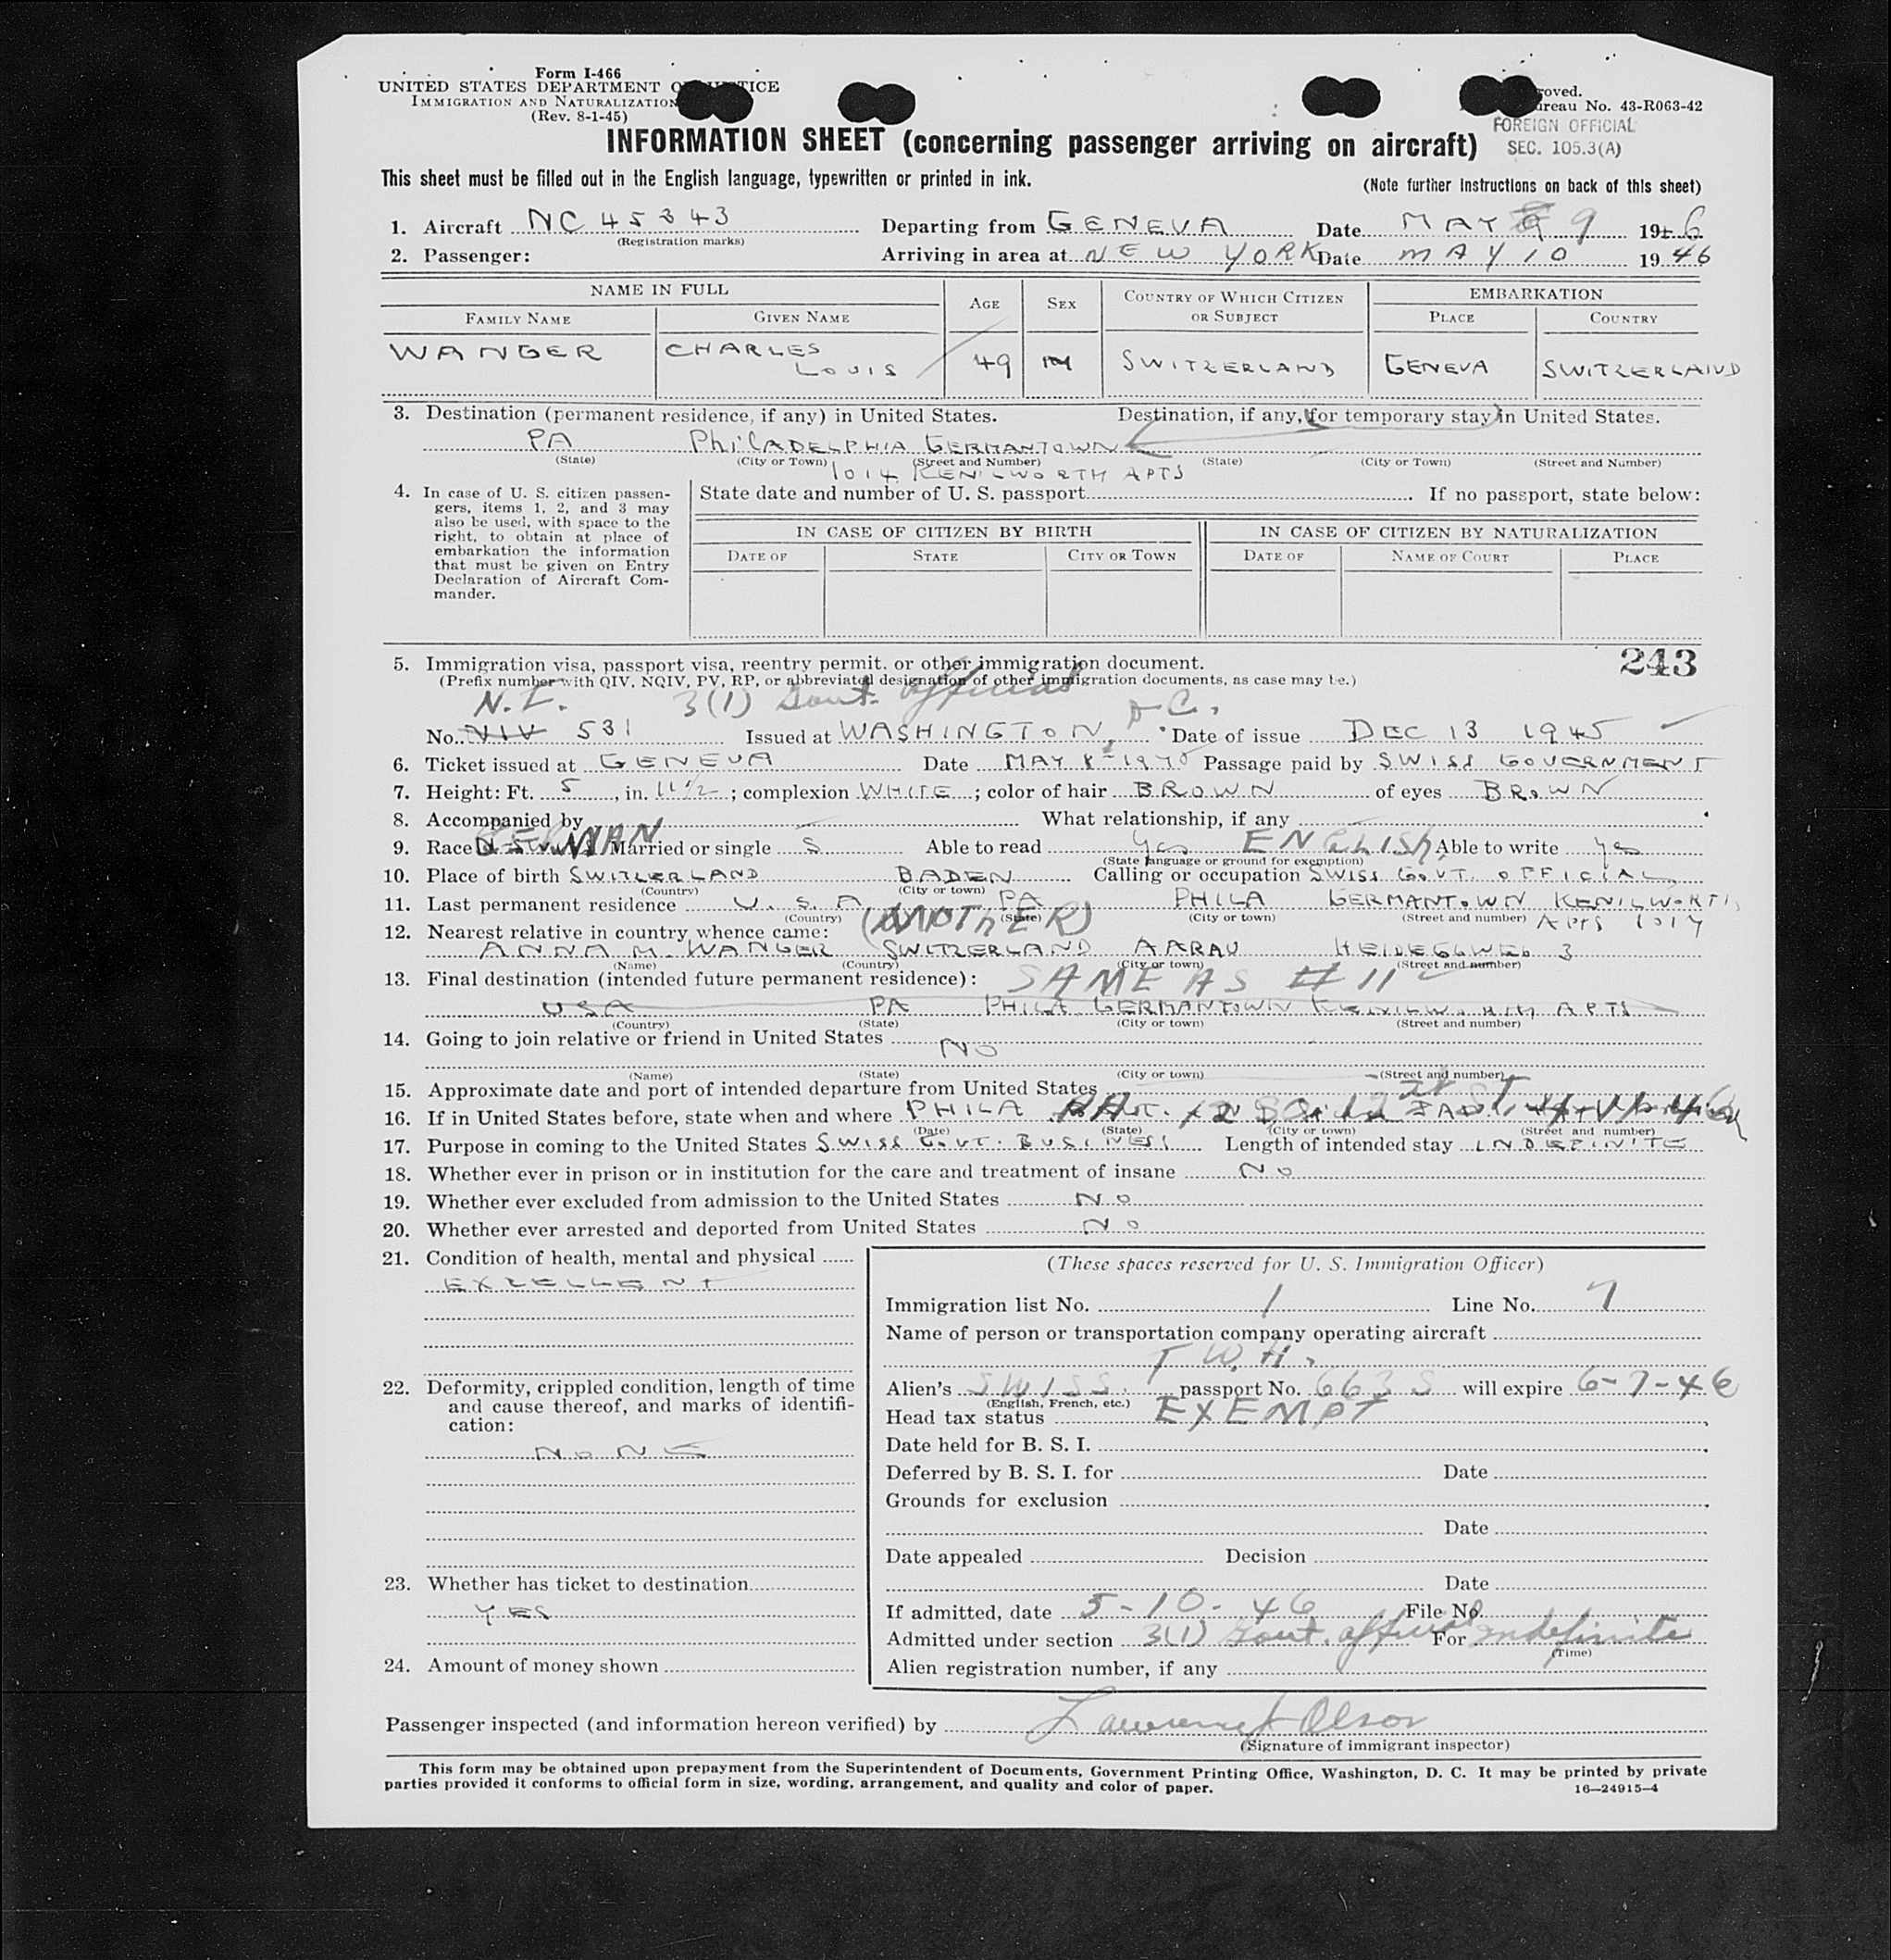 Form I-466
UNITED STATES DEPARTMENT
IMMIGRATION AND NATURALIZATION
(Rev. 8-1-45)
No. 43-R063-42
FOREIGN OFFICIAL
SEC. 105.3(A)
INFORMATION SHEET (concerning passenger arriving on aircraft)
This sheet must be filled out in the English language, typewritten or printed in ink.
(Note further instructions on back of this sheet)
1. Aircraft NC 45343 Departing from GENEVA Date MAY 9 1946
(Registration marks)
2. Passenger: Arriving in area at NEW YORK Date MAY 10 1946
NAME IN FULL AGE SEX COUNTRY OF WHICH CITIZEN OR SUBJECT EMBARKATION
FAMILY NAME GIVEN NAME PLACE COUNTRY
WANGER CHARLES LOUIS 49 M SWITZERLAND GENEVA SWITZERLAND
3. Destination (permanent residence, if any) in United States. Destination, if any, (for temporary stay) in United States.
PA PHILADELPHIA GERMANTOWN
(State) (City or Town) (Street and Number) (State) (City or Town) (Street and Number)
1014 KENILWORTH APTS
4. In case of U. S. citizen passengers, items 1, 2, and 3 may also be used, with space to the right, to obtain at place of embarkation the information that must be given on Entry Declaration of Aircraft Commander.
State date and number of U. S. passport. If no passport, state below:
IN CASE OF CITIZEN BY BIRTH IN CASE OF CITIZEN BY NATURALIZATION
DATE OF STATE CITY OR TOWN DATE OF NAME OF COURT PLACE
5. Immigration visa, passport visa, reentry permit, or other immigration document.
243
(Prefix number with QIV, NQIV, PV, RP, or abbreviated designation of other immigration documents, as case may be.)
N.I. 3(1) Govt. official
No. VIV 531 Issued at WASHINGTON, D.C. Date of issue DEC 13 1945
6. Ticket issued at GENEVA Date MAY 8 Passage paid by SWISS GOVERNMENT
7. Height: Ft. 5, in. 11 1/2; complexion WHITE; color of hair BROWN of eyes BROWN
8. Accompanied by What relationship, if any
9. Race GERMAN Married or single S Able to read Yes ENGLISH Able to write Yes
(State language or ground for exemption)
10. Place of birth SWITZERLAND BADEN Calling or occupation SWISS GOVT. OFFICIAL
(Country) (City or town)
11. Last permanent residence U.S.A PA PHILA GERMANTOWN KENILWORTH
(Country) (State) (City or town) (Street and number) APTS 1014
12. Nearest relative in country whence came: (MOTHER)
ANNA M. WANGER SWITZERLAND AARAU HEIDEGGWEG 3
(Name) (Country) (City or town) (Street and number)
13. Final destination (intended future permanent residence): SAME AS # 11
USA PA PHILA GERMANTOWN KENILWORTH APTS
(Country) (State) (City or town) (Street and number)
14. Going to join relative or friend in United States NO
(Name) (State) (City or town) (Street and number)
15. Approximate date and port of intended departure from United States
16. If in United States before, state when and where PHILA
(Date) (State) (City or town) (Street and number)
17. Purpose in coming to the United States SWISS GOVT. BUSINESS Length of intended stay INDEFINITE
18. Whether ever in prison or in institution for the care and treatment of insane No
19. Whether ever excluded from admission to the United States No
20. Whether ever arrested and deported from United States No
21. Condition of health, mental and physical
EXZELLENT
22. Deformity, crippled condition, length of time and cause thereof, and marks of identification:
NONE
23. Whether has ticket to destination
YES
24. Amount of money shown
(These spaces reserved for U. S. Immigration Officer)
Immigration list No. 1 Line No. 7
Name of person or transportation company operating aircraft
Alien's SWISS passport No. 663 S will expire 6-7-46
(English, French, etc.)
Head tax status EXEMPT
Date held for B. S. I.
Deferred by B. S. I. for Date
Grounds for exclusion
Date
Date appealed Decision
Date
If admitted, date 5-10-46 File No.
Admitted under section 3(1) Govt. official For indefinite
(Time)
Alien registration number, if any
Passenger inspected (and information hereon verified) by Olson
(Signature of immigrant inspector)
This form may be obtained upon prepayment from the Superintendent of Documents, Government Printing Office, Washington, D. C. It may be printed by private
parties provided it conforms to official form in size, wording, arrangement, and quality and color of paper.
16—24915-4